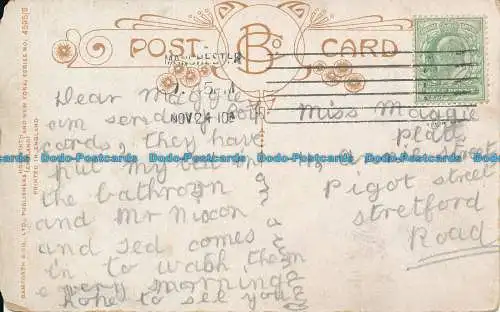 POST CARD
B Co
MANCHESTER
NOV 24 10
BAMFORTH & CO., LTD., PUBLISHERS
AND NEW YORK, SERIES NO. 4595/3
PRINTED IN ENGLAND
Dear Maggie
am sending both
cards, they have
put my bed in
the bathroom
and Mr Nixon
and Ted comes
in to wash them
every morning
hope to see you
Miss Maggie
Platt
street
Pigot street
stretford
Road
Dodo-Postcards Dodo-Postcards Dodo-Postcards Dodo-Postcards Dodo-Postcards Dodo-Postcards